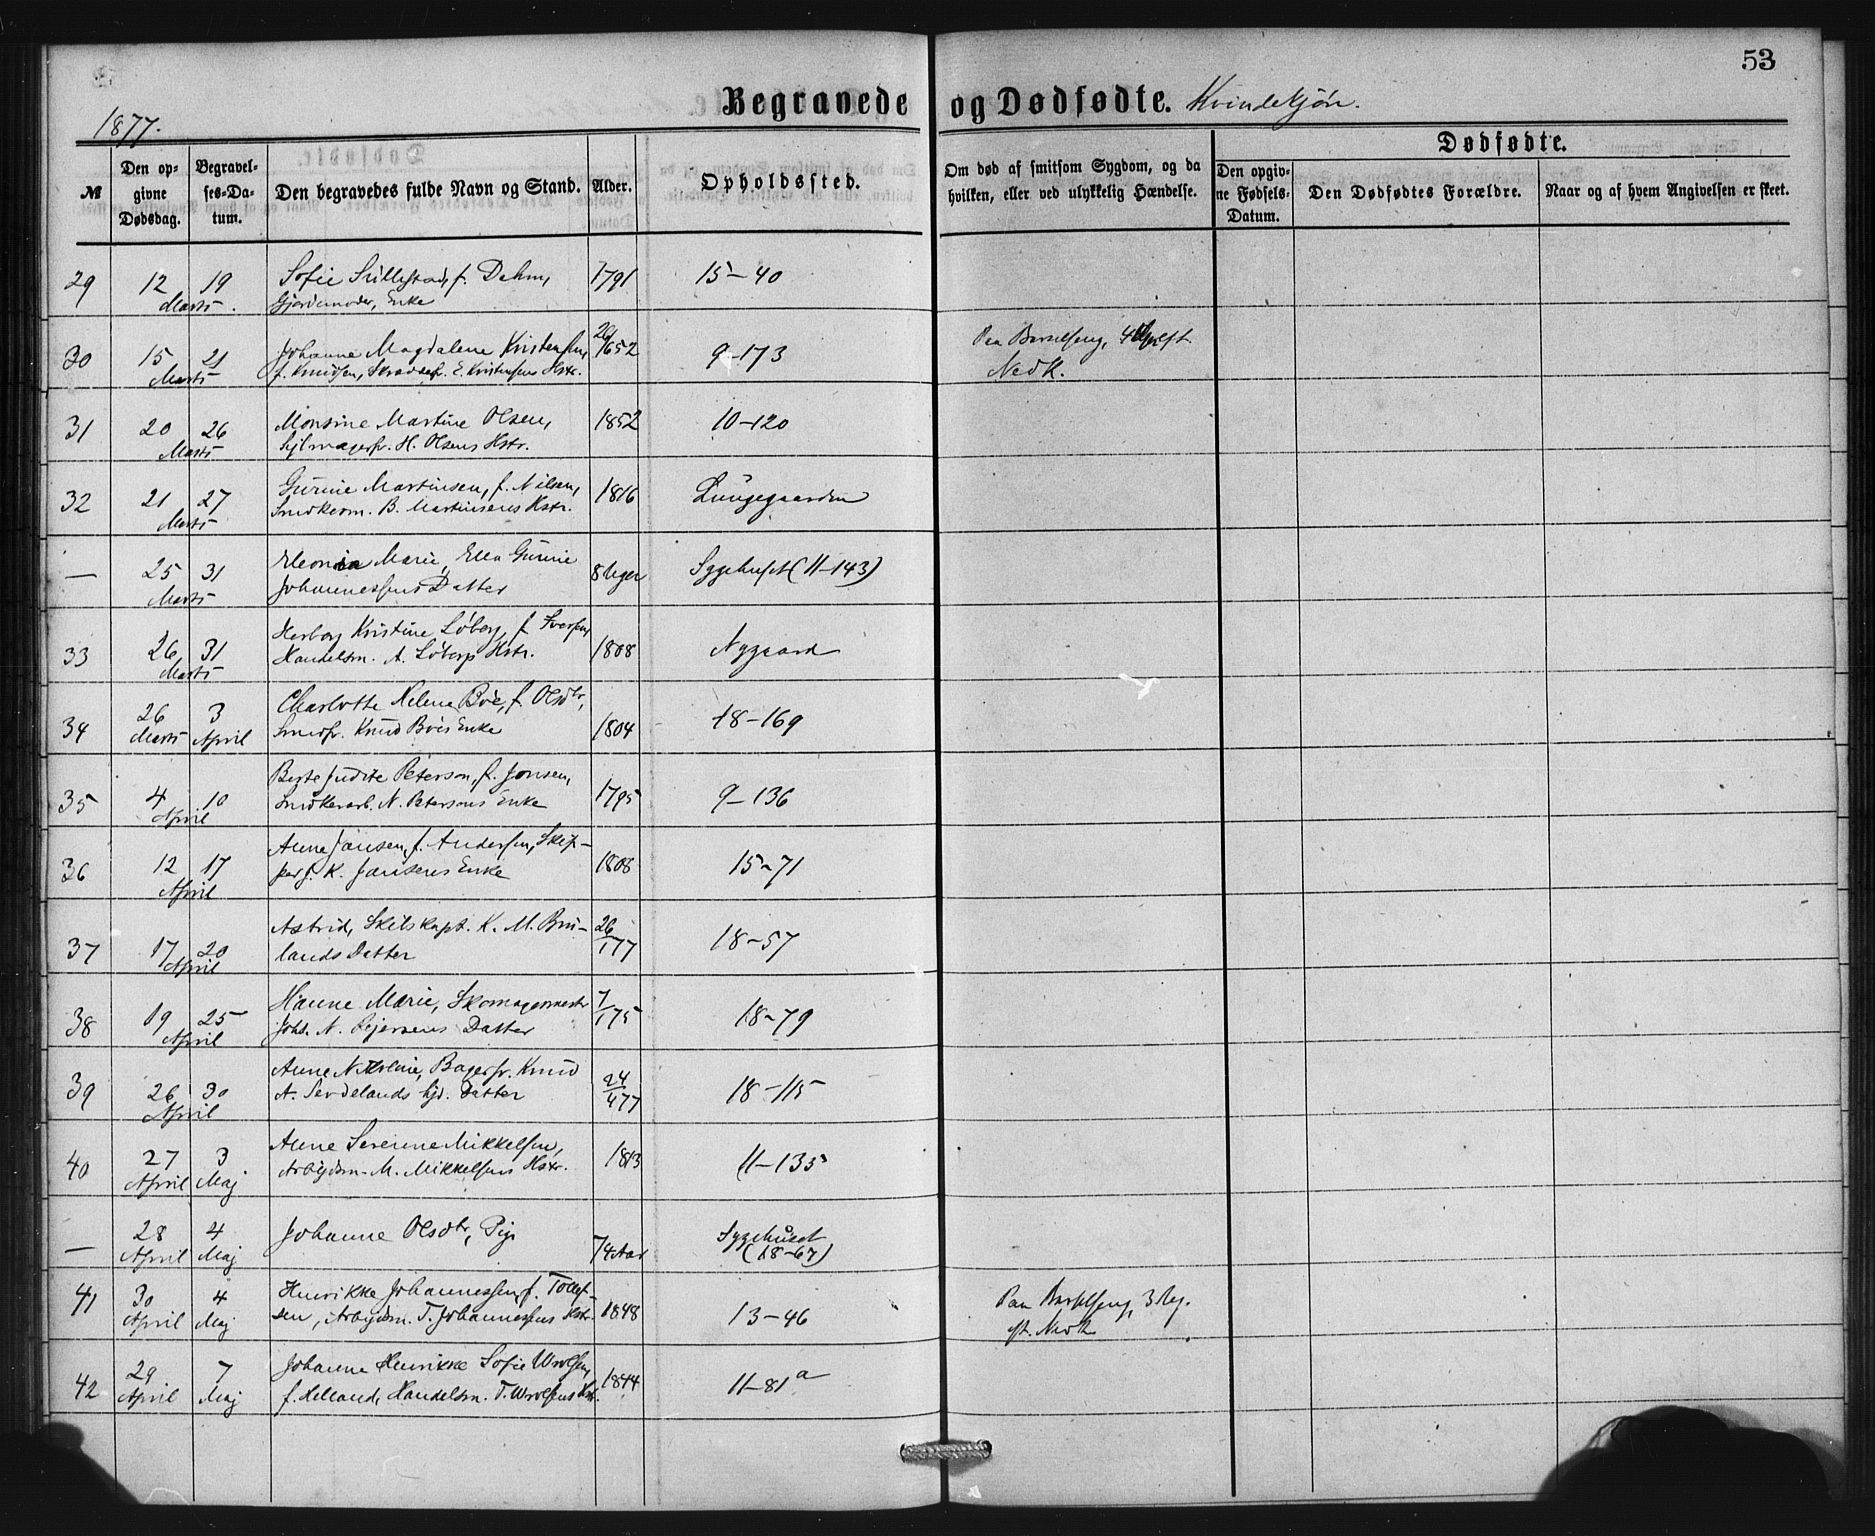 53
Begravede og Dødfødte. Kvindekjøn.
1877.
№
Den opgivne Dødsdag.
Begravelses-Datum.
Den begravedes fulde Navn og Stand.
Alder.
Opholdssted.
Om død af smitsom Sygdom, og da hvilken, eller ved ulykkelig Hændelse.
Dødfødte.
Den opgivne Fødsels-Datum.
Den Dødfødtes Forældre.
Naar og af hvem Angivelsen er skeet.
29 12 19 Sofie f. Dahm, 1791 15–40
Marts. Gjordemoder, Enke
30 15 21 Johanne Magdalene Kristensen, 26/652 9–173 Paa Barselseng, eft.
Marts f. Knudsen, E. Kristensens Hstr. Nedk.
31 20 26 Monsine Martine Olsen, 1852 10–120
Marts H. Olsens Hstr.
32 21 27 Gurine Martinsen, f. Nilsen, 1816 Lungegaarden
Marts B. Martinsens Hstr.
— 25 31 Marie, Gurine 8 Uger Sygehuset (11–143)
Marts Johannessens Datter
33 26 31 Herborg Kristine Løberg, f. Iversen, 1808 Nygaard
Marts Handelsm. A. Løbergs Hstr.
34 26 3 Charlotte Helene Bøe, f. Olsdtr, 1804 18–169
Marts April Knud Bøes Enke
35 4 10 Judite Peterson, f. Jonsen, 1795 9–136
April Snedkerarb. N. Petersons Enke
36 12 17 Anne Jansen, f. Andersen, Skip- 1808 15–71
April perf. K. Jansens Enke
37 17 20 Astrid, Skibskapt. K. M. Bru- 26/177 18–57
April lands Datter
38 19 25 Hanne Marie, Skomagermestr 7/175 18–79
April Joh. N. Datter
39 26 30 Anne Bagersv. Knud 24/477 18–115
April A. Datter
40 27 3 Anne Severine Mikkelsen, 1813 11–135
April Maj Arbeidsm. M. Mikkelsens Hstr.
— 28 4 Johanne Olsdtr, Pige 74 Aar Sygehuset
April Maj (18–67)
41 30 4 Henrikke Johannessen, f. Tollef- 1848 13–46 Paa Barselseng, 3
April Maj sen, Arbeidsm. T. Johannessens Hstr. eft. Nedk
42 29 7 Johanne Henrikke Sofie 1844 11–81a
April Maj f. Helland, Handelsm. T. Hstr.